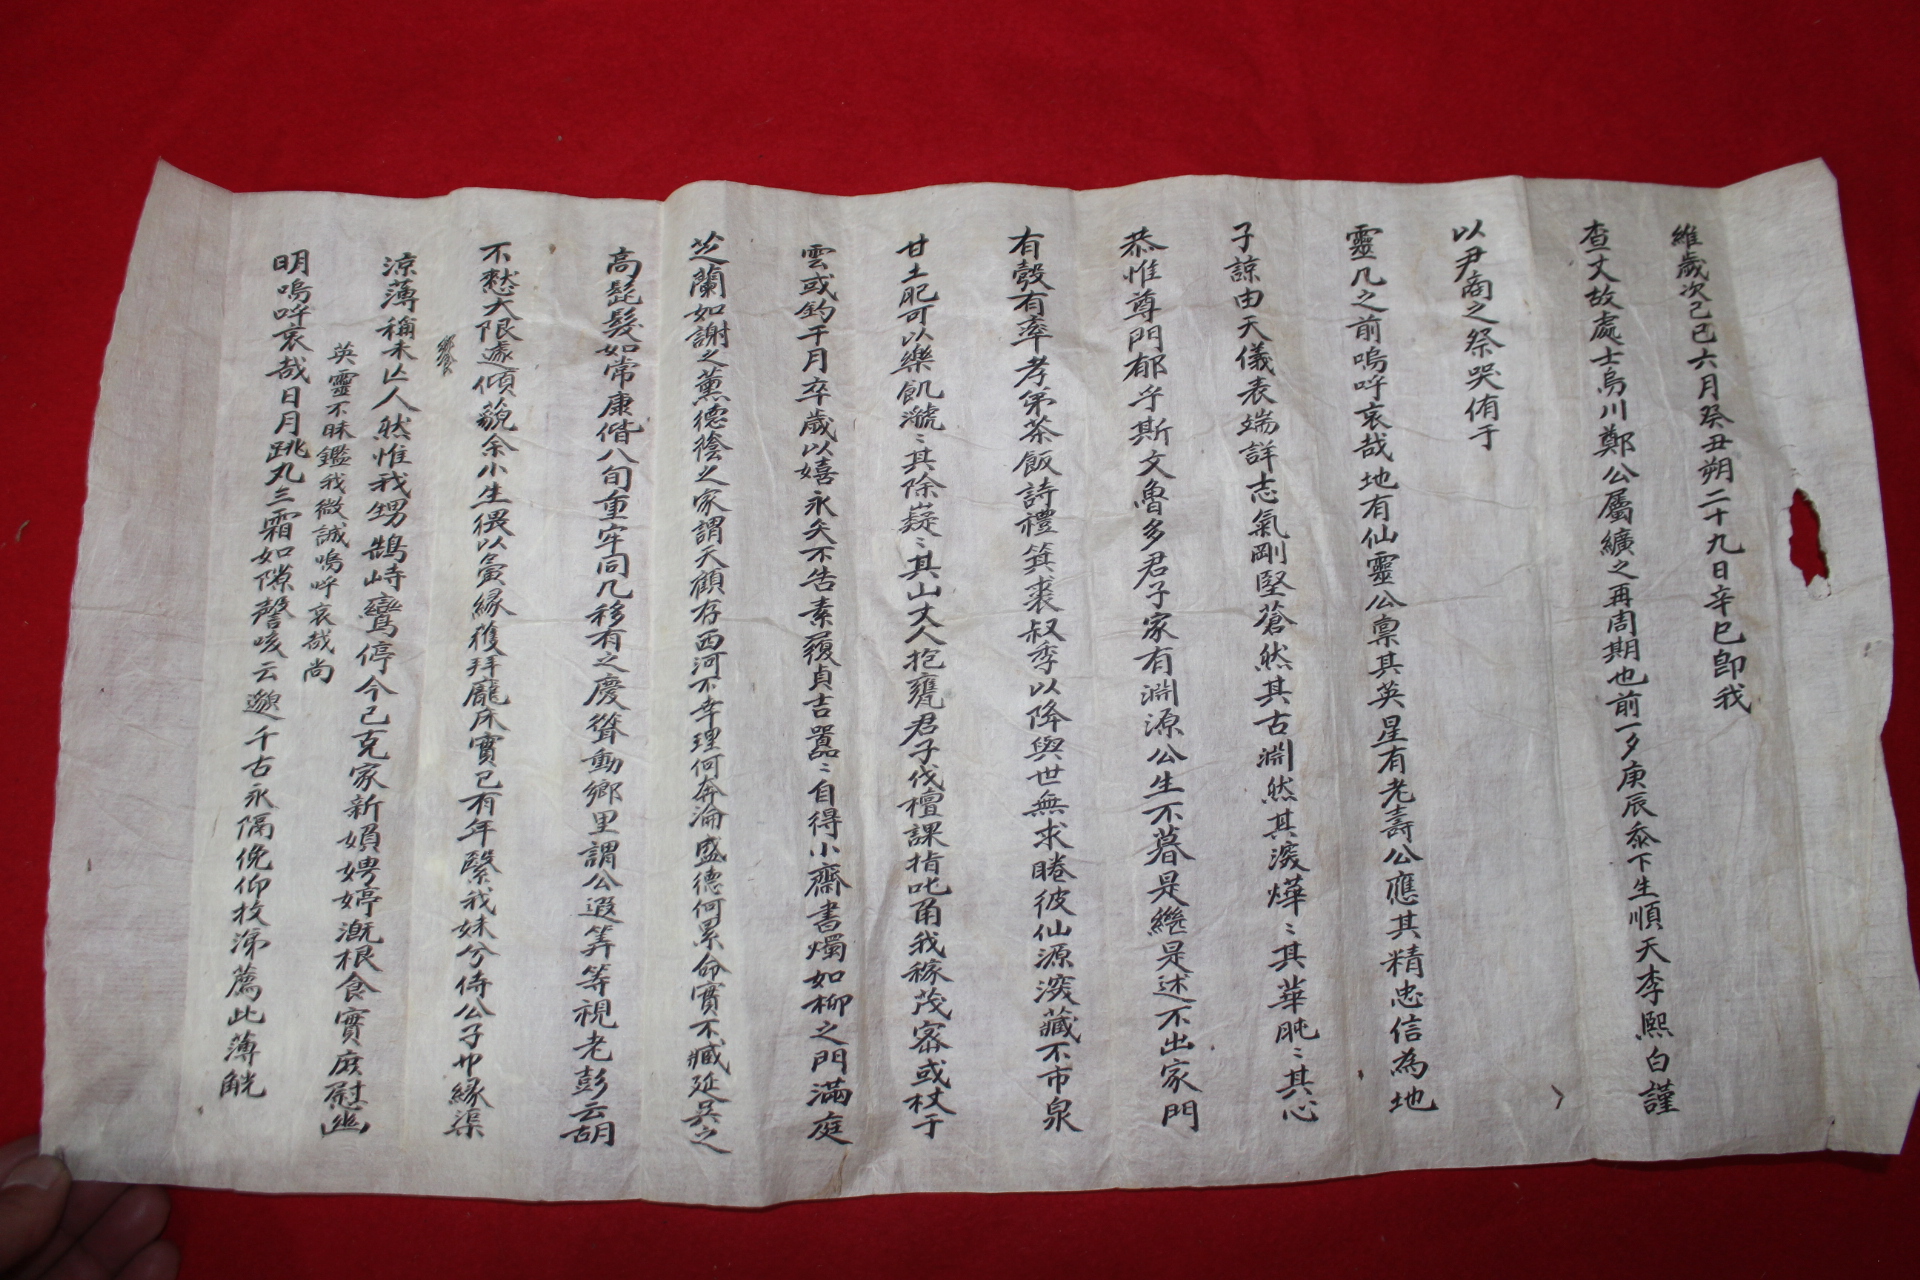 維歲次己巳六月癸丑朔二十九日辛巳卽我
查丈故處士烏川鄭公屬纊之再周期也前一夕庚辰忝下生順天李熙白謹
以尹商之祭哭侑于
靈几之前嗚呼哀哉地有仙靈公禀其英星有老壽公應其精忠信為地
子諒由天儀表端詳志氣剛堅蒼然其古淵然其深燁〻其華肫〻其心
恭惟尊門郁乎斯文魯多君子家有淵源公生不暮是繼是述不出家門
有觳有率孝弟茶飯詩禮箕裘叔季以降與世無求睠彼仙源深藏不市泉
甘土肥可以樂飢漉〻其除嶷〻其山丈人抱甕君子伐檀課指叱角我稼茂密或杖于
雲或釣于月卒歲以嬉永矢不告素履貞吉囂〻自得小齋書燭如柳之門滿庭
芝蘭如謝之薰德陰之家謂天顧存西河不幸理何奔淪盛德何累命實不臧延吳之
高髭髮如常康偕八旬重牢同几移有之慶聳動鄉里謂公遐筭等視老彭云胡
不憖大限遽傾藐余小生猥以夤緣獲拜龐床實已有年緊我妹兮侍公子巾緣渠
涼薄稱未亡人然惟我甥鵠峙鸞停今已克家新嬪娉婷漑根食實庶慰幽
明嗚呼哀哉日月跳丸三霜如隙謦咳云邈千古永隔俛仰抆涕薦此薄觥
英靈不昧鑑我微誠嗚呼哀哉尚